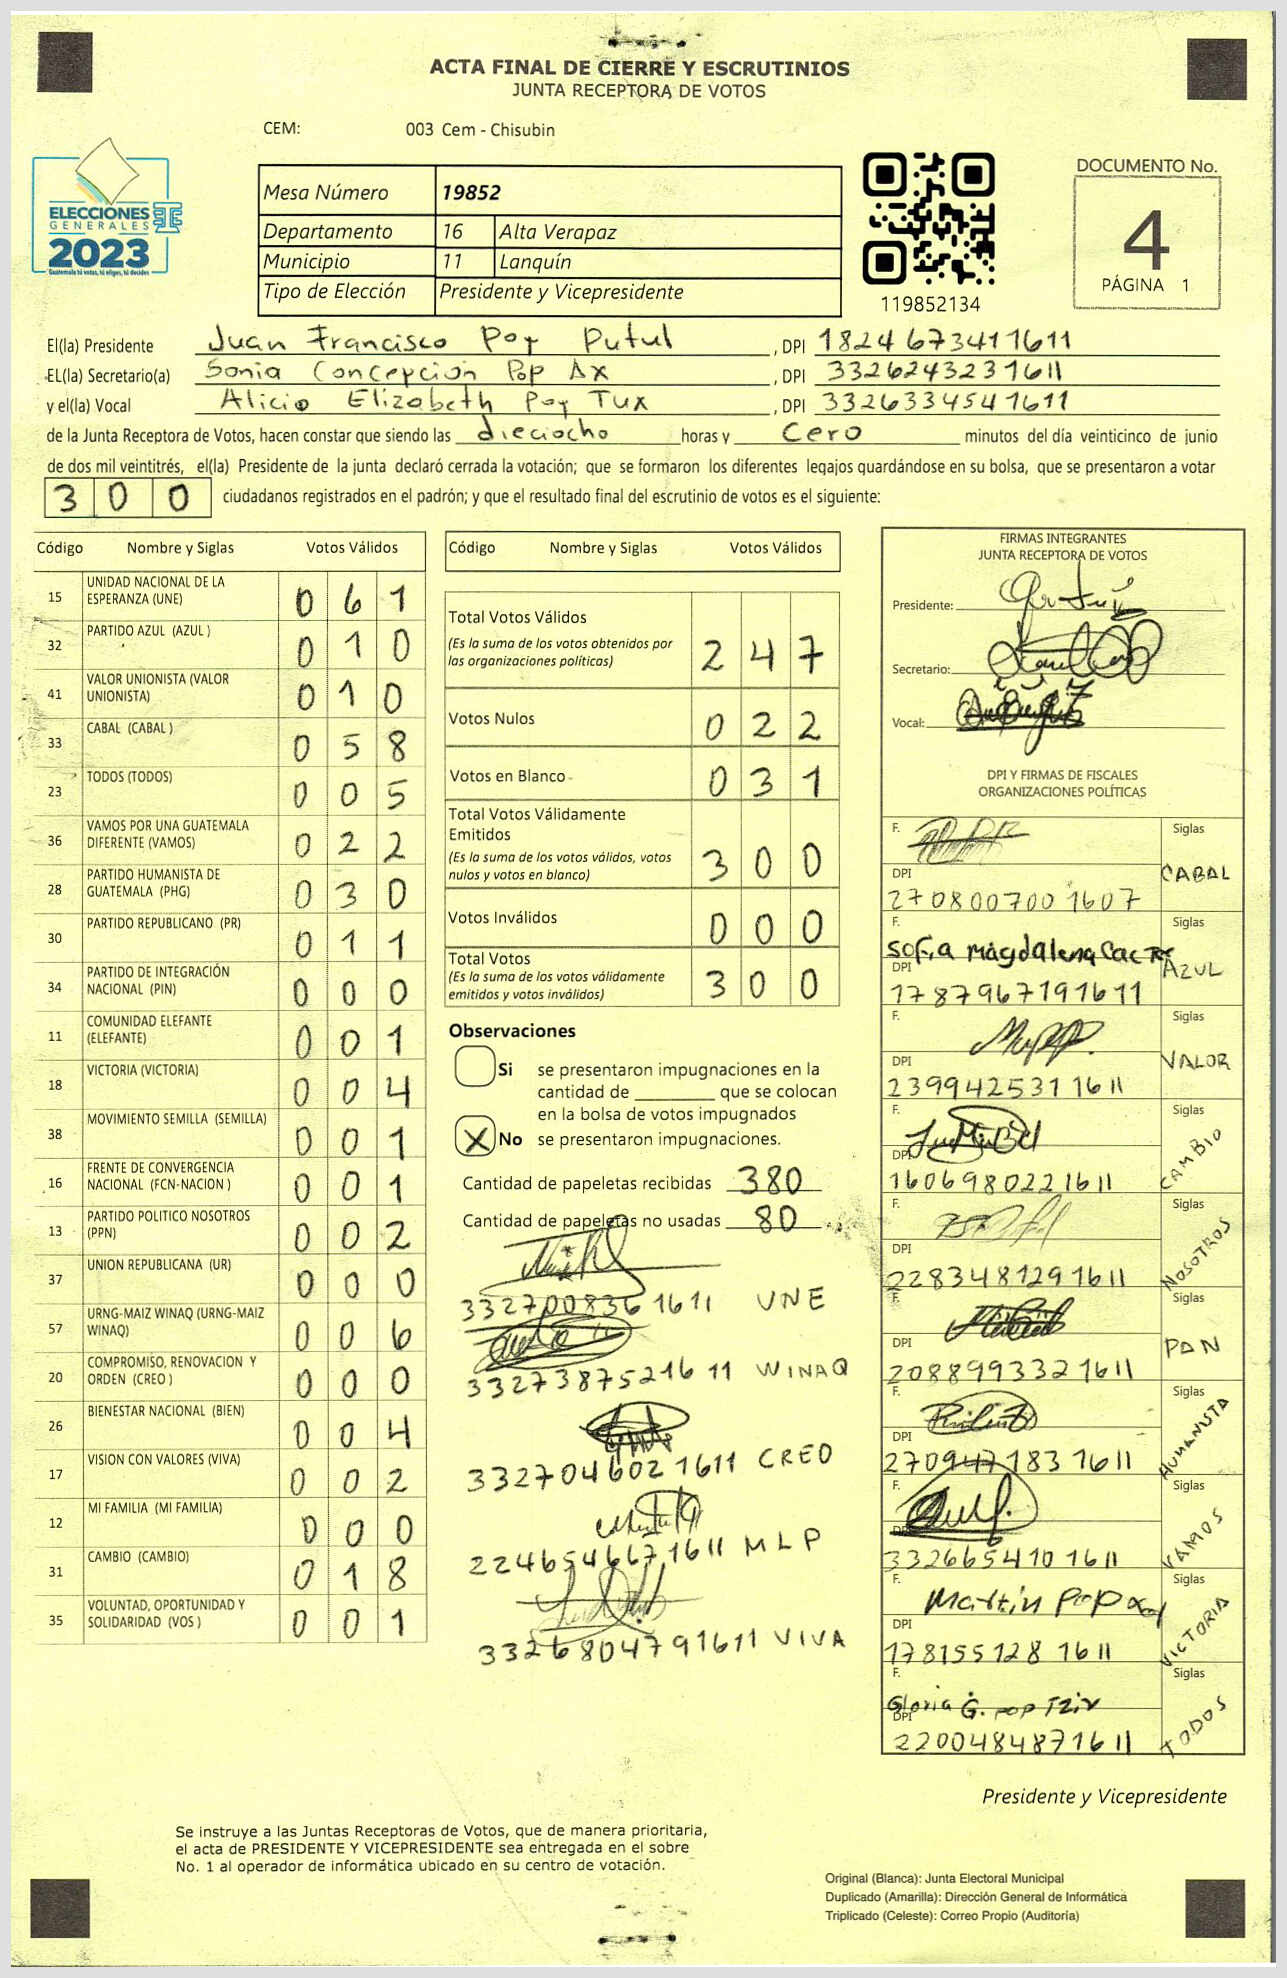 ACTA FINAL DE CIERRE Y ESCRUTINIOS
JUNTA RECEPTORA DE VOTOS
CEM: 003 Cem - Chisubin
ELECCIONES
GENERALES
2023
Guatemala tú votas, tú eliges, tú decides
Mesa Número 19852
Departamento 16 Alta Verapaz
Municipio 11 Lanquín
Tipo de Elección Presidente y Vicepresidente
119852134
DOCUMENTO No.
4
PÁGINA 1
El(la) Presidente Juan Francisco Pop Putul, DPI 1824673411611
EL(la) Secretario(a) Sonia Concepción Pop Ax, DPI 3326243231611
y el(la) Vocal Alicia Elizabeth Pop Tux, DPI 3326334541611
de la Junta Receptora de Votos, hacen constar que siendo las dieciocho horas y cero minutos del día veinticinco de junio
de dos mil veintitrés, el(la) Presidente de la junta declaró cerrada la votación; que se formaron los diferentes legajos guardándose en su bolsa, que se presentaron a votar
300 ciudadanos registrados en el padrón; y que el resultado final del escrutinio de votos es el siguiente:
Código Nombre y Siglas Votos Válidos
15 UNIDAD NACIONAL DE LA ESPERANZA (UNE) 061
32 PARTIDO AZUL (AZUL ) 010
41 VALOR UNIONISTA (VALOR UNIONISTA) 010
33 CABAL (CABAL ) 058
23 TODOS (TODOS) 005
36 VAMOS POR UNA GUATEMALA DIFERENTE (VAMOS) 022
28 PARTIDO HUMANISTA DE GUATEMALA (PHG) 030
30 PARTIDO REPUBLICANO (PR) 011
34 PARTIDO DE INTEGRACIÓN NACIONAL (PIN) 000
11 COMUNIDAD ELEFANTE (ELEFANTE) 001
18 VICTORIA (VICTORIA) 004
38 MOVIMIENTO SEMILLA (SEMILLA) 001
16 FRENTE DE CONVERGENCIA NACIONAL (FCN-NACION ) 001
13 PARTIDO POLITICO NOSOTROS (PPN) 002
37 UNION REPUBLICANA (UR) 000
57 URNG-MAIZ WINAQ (URNG-MAIZ WINAQ) 006
20 COMPROMISO, RENOVACION Y ORDEN (CREO ) 000
26 BIENESTAR NACIONAL (BIEN) 004
17 VISION CON VALORES (VIVA) 002
12 MI FAMILIA (MI FAMILIA) 000
31 CAMBIO (CAMBIO) 018
35 VOLUNTAD, OPORTUNIDAD Y SOLIDARIDAD (VOS ) 001
Código Nombre y Siglas Votos Válidos
Total Votos Válidos 247
(Es la suma de los votos obtenidos por
las organizaciones políticas)
Votos Nulos 022
Votos en Blanco 031
Total Votos Válidamente Emitidos 300
(Es la suma de los votos válidos, votos
nulos y votos en blanco)
Votos Inválidos 000
Total Votos 300
(Es la suma de los votos válidamente
emitidos y votos inválidos)
Observaciones
Si se presentaron impugnaciones en la
cantidad de ________ que se colocan
en la bolsa de votos impugnados
X No se presentaron impugnaciones.
Cantidad de papeletas recibidas 380
Cantidad de papeletas no usadas 80
3327008361611 UNE
3327387521611 WINAQ
3327046021611 CREO
2246546671611 MLP
3326804791611 VIVA
FIRMAS INTEGRANTES
JUNTA RECEPTORA DE VOTOS
Presidente:
Secretario:
Vocal:
DPI Y FIRMAS DE FISCALES
ORGANIZACIONES POLÍTICAS
F. Siglas
DPI CABAL
2708007001607
F. Sofia Magdalena Cac Siglas
DPI AZUL
1787967191611
F. Siglas
DPI VALOR
2399425311611
F. Siglas
DPI CAMBIO
1606980221611
F. Siglas
DPI NOSOTROS
2283481291611
F. Siglas
DPI PAN
2088993321611
F. Siglas
DPI HUMANISTA
2709471831611
F. Siglas
DPI VAMOS
3326654101611
F. Martin Pop Siglas
DPI VICTORIA
1781551281611
F. Gloria G. Pop Tziv Siglas
DPI TODOS
2200484871611
Presidente y Vicepresidente
Se instruye a las Juntas Receptoras de Votos, que de manera prioritaria,
el acta de PRESIDENTE Y VICEPRESIDENTE sea entregada en el sobre
No. 1 al operador de informática ubicado en su centro de votación.
Original (Blanca): Junta Electoral Municipal
Duplicado (Amarilla): Dirección General de Informática
Triplicado (Celeste): Correo Propio (Auditoría)